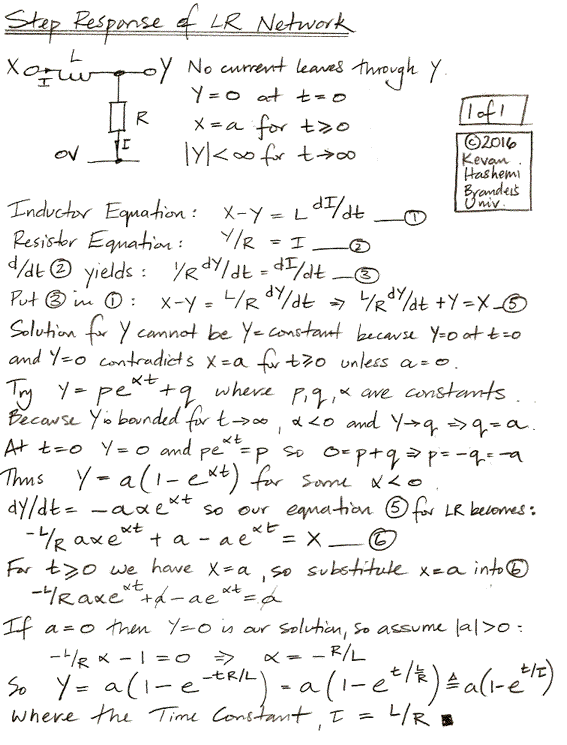 Step Response of LR Network
X L Y No current leaves through Y.
I
Y=0 at t=0
R
X=a for t≥0
I
0V |Y|<∞ for t→∞
1 of 1
©2016
Kevan
Hashemi
Brandeis
Univ.
Inductor Equation: X-Y = L dI/dt —①
Resistor Equation: Y/R = I —②
d/dt ② yields: 1/R dY/dt = dI/dt —③
Put ③ in ①: X-Y = L/R dY/dt ⇒ L/R dY/dt + Y = X —⑤
Solution for Y cannot be Y=constant because Y=0 at t=0
and Y=0 contradicts X=a for t≥0 unless a=0.
Try Y = pe^{αt}+q where p,q,α are constants.
Because Y is bounded for t→∞, α<0 and Y→q ⇒ q=a.
At t=0 Y=0 and pe^{αt}=p so 0=p+q ⇒ p=-q=-a
Thus Y = a(1-e^{αt}) for some α<0
dY/dt = -aαe^{αt} so our equation ⑤ for LR becomes:
-L/R aαe^{αt} + a - ae^{αt} = X —⑥
For t≥0 we have X=a, so substitute x=a into ⑥
-L/R aαe^{αt} + a - ae^{αt} = a
If a=0 then Y=0 is our solution, so assume |a|>0:
-L/R α - 1 = 0 ⇒ α = -R/L
So Y = a(1-e^{-tR/L}) = a(1-e^{t/\frac{L}{R}}) ≜ a(1-e^{t/τ})
where the Time Constant, τ = L/R ■